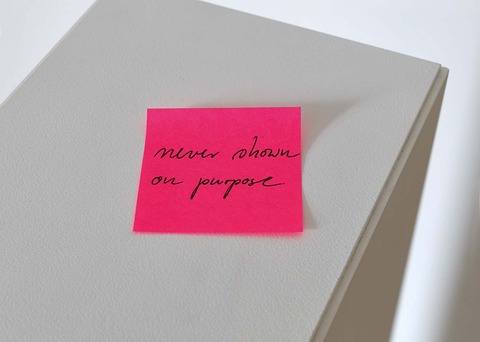 never shown
on purpose.